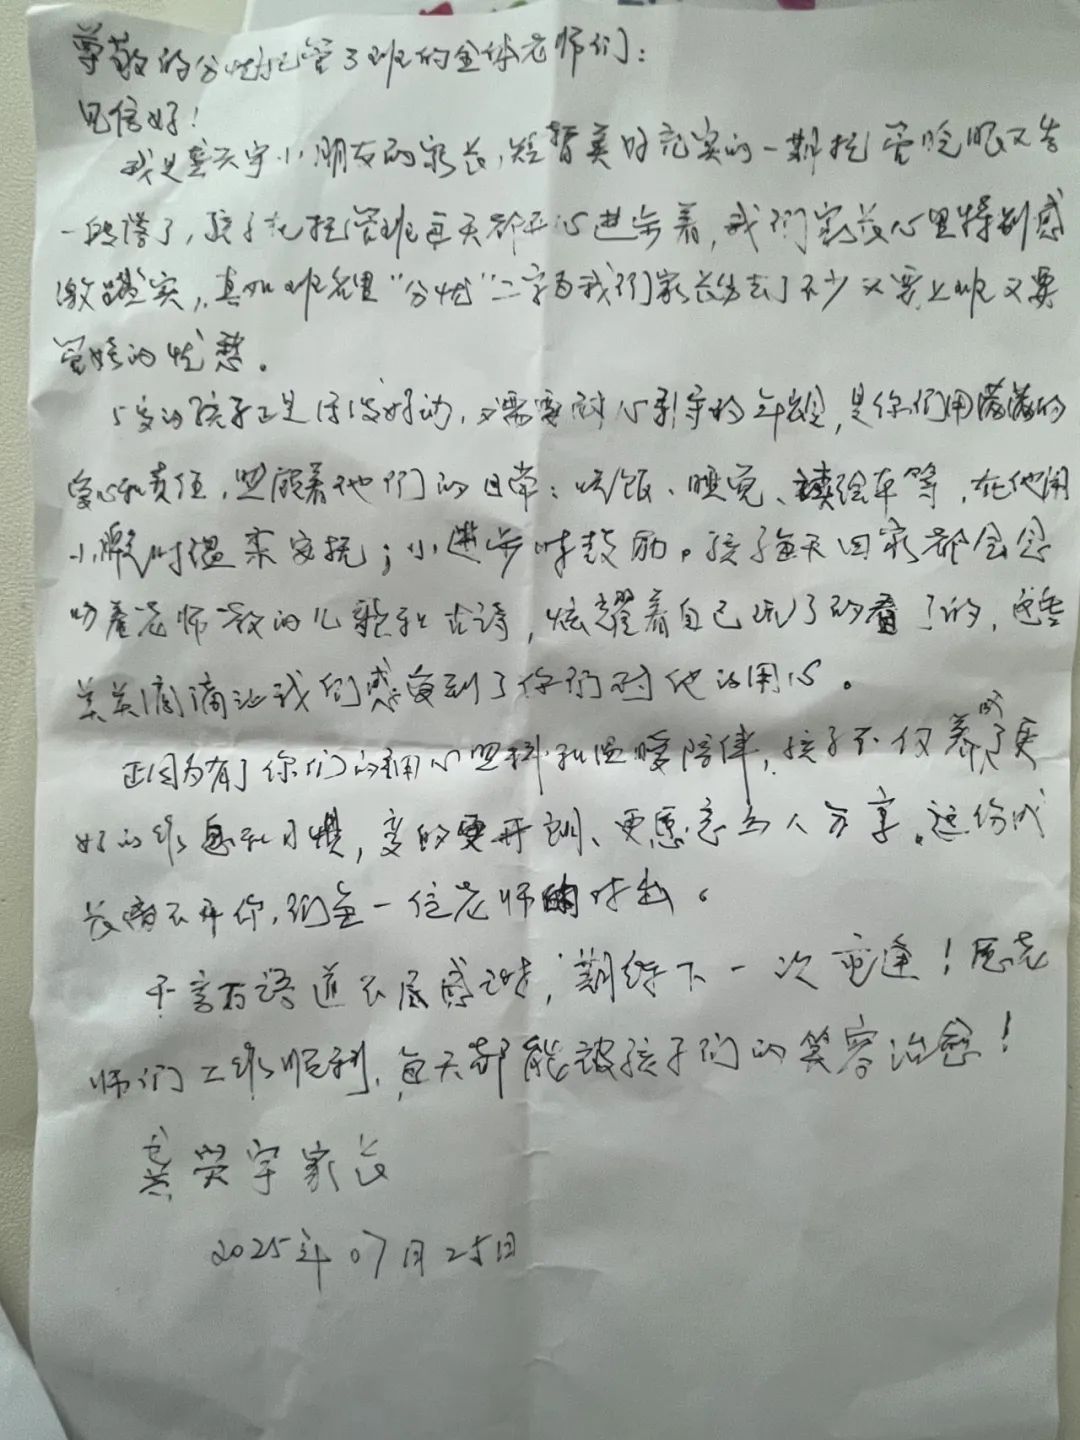 尊敬的分忧托管3班的全体老师们：
见信好！
我是龚天宇小朋友的家长，短暂美好充实的一期托管眨眼又告
一段落了，孩子在托管班每天都开心进步着，我们家长心里特别感
激踏实，真如班名里“分忧”二字为我们家长分去了不少又要上班又要
管娃的忧愁。
5岁的孩子正是活泼好动，又需要耐心引导的年纪，是你们用满满的
爱心和责任，照顾着他们的日常：吃饭、睡觉、读绘本等，在他闹
小脾气时温柔安抚；小进步时鼓励。孩子每天回家都会念
叨着老师教的儿歌和古诗，炫耀着自己玩了的看了的，这些
点点滴滴让我们感受到了你们对他的用心。
正因为有了你们的用心照料和温暖陪伴，孩子不仅养成了更
好的作息和习惯，变的更开朗、更愿意与人分享。这份成
长离不开你们每一位老师的付出。
千言万语道不尽感谢，期待下一次重逢！愿老
师们工作顺利，每天都能被孩子们的笑容治愈！
龚 宇家长
2025年07月25日